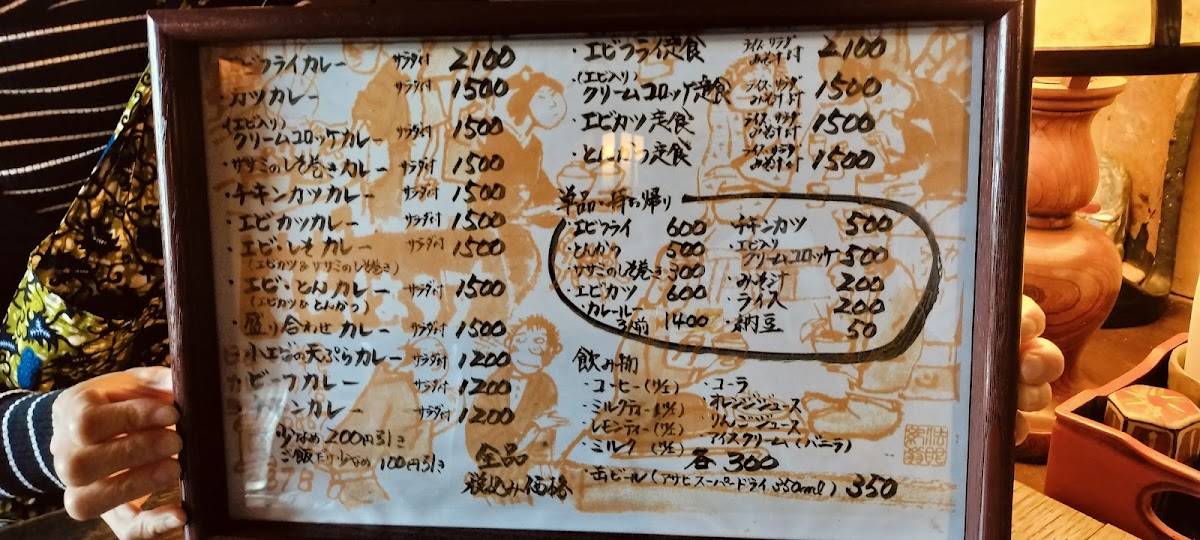 エビフライカレー サラダ付 2100
・カツカレー サラダ付 1500
(エビ入り)
クリームコロッケカレー サラダ付 1500
・ササミのしそ巻きカレー サラダ付 1500
・チキンカツカレー サラダ付 1500
・エビカツカレー サラダ付 1500
・エビ・しそカレー サラダ付 1500
(エビカツ&ササミのしそ巻き)
・エビ・とんカレー サラダ付 1500
(エビカツ&とんかつ)
・盛り合わせカレー サラダ付 1500
小エビの天ぷらカレー サラダ付 1200
ビーフカレー サラダ付 1200
チキンカレー サラダ付 1200
少なめ 200円引き
ご飯だけ少なめ 100円引き
全品
税込み価格
・エビフライ定食 ライス・サラダ みそ汁付 2100
(エビ入り)
クリームコロッケ定食 ライス・サラダ みそ汁付 1500
・エビカツ定食 ライス・サラダ みそ汁付 1500
・とんかつ定食 ライス・サラダ みそ汁付 1500
単品・持ち帰り
・エビフライ 600
・とんかつ 500
・ササミのしそ巻き 300
・エビカツ 600
・カレールー
3人前 1400
・チキンカツ 500
・エビ入り
クリームコロッケ 500
・みそ汁 200
・ライス 200
・納豆 50
飲み物
・コーヒー(H/I)
・ミルクティー(H/I)
・レモンティー(H/I)
・ミルク(H/I)
・コーラ
・オレンジジュース
・りんごジュース
・アイスクリーム(バニラ)
各 300
・缶ビール(アサヒスーパードライ350ml) 350